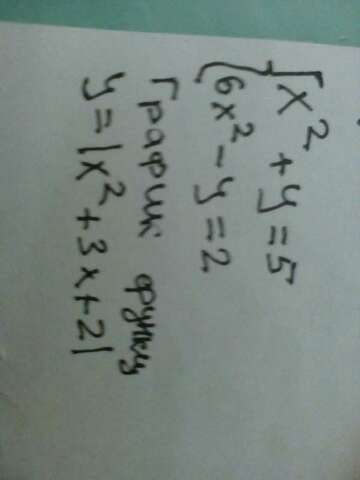 { x² + y = 5
{ 6x² - y = 2
График функц
y = |x² + 3x + 2|